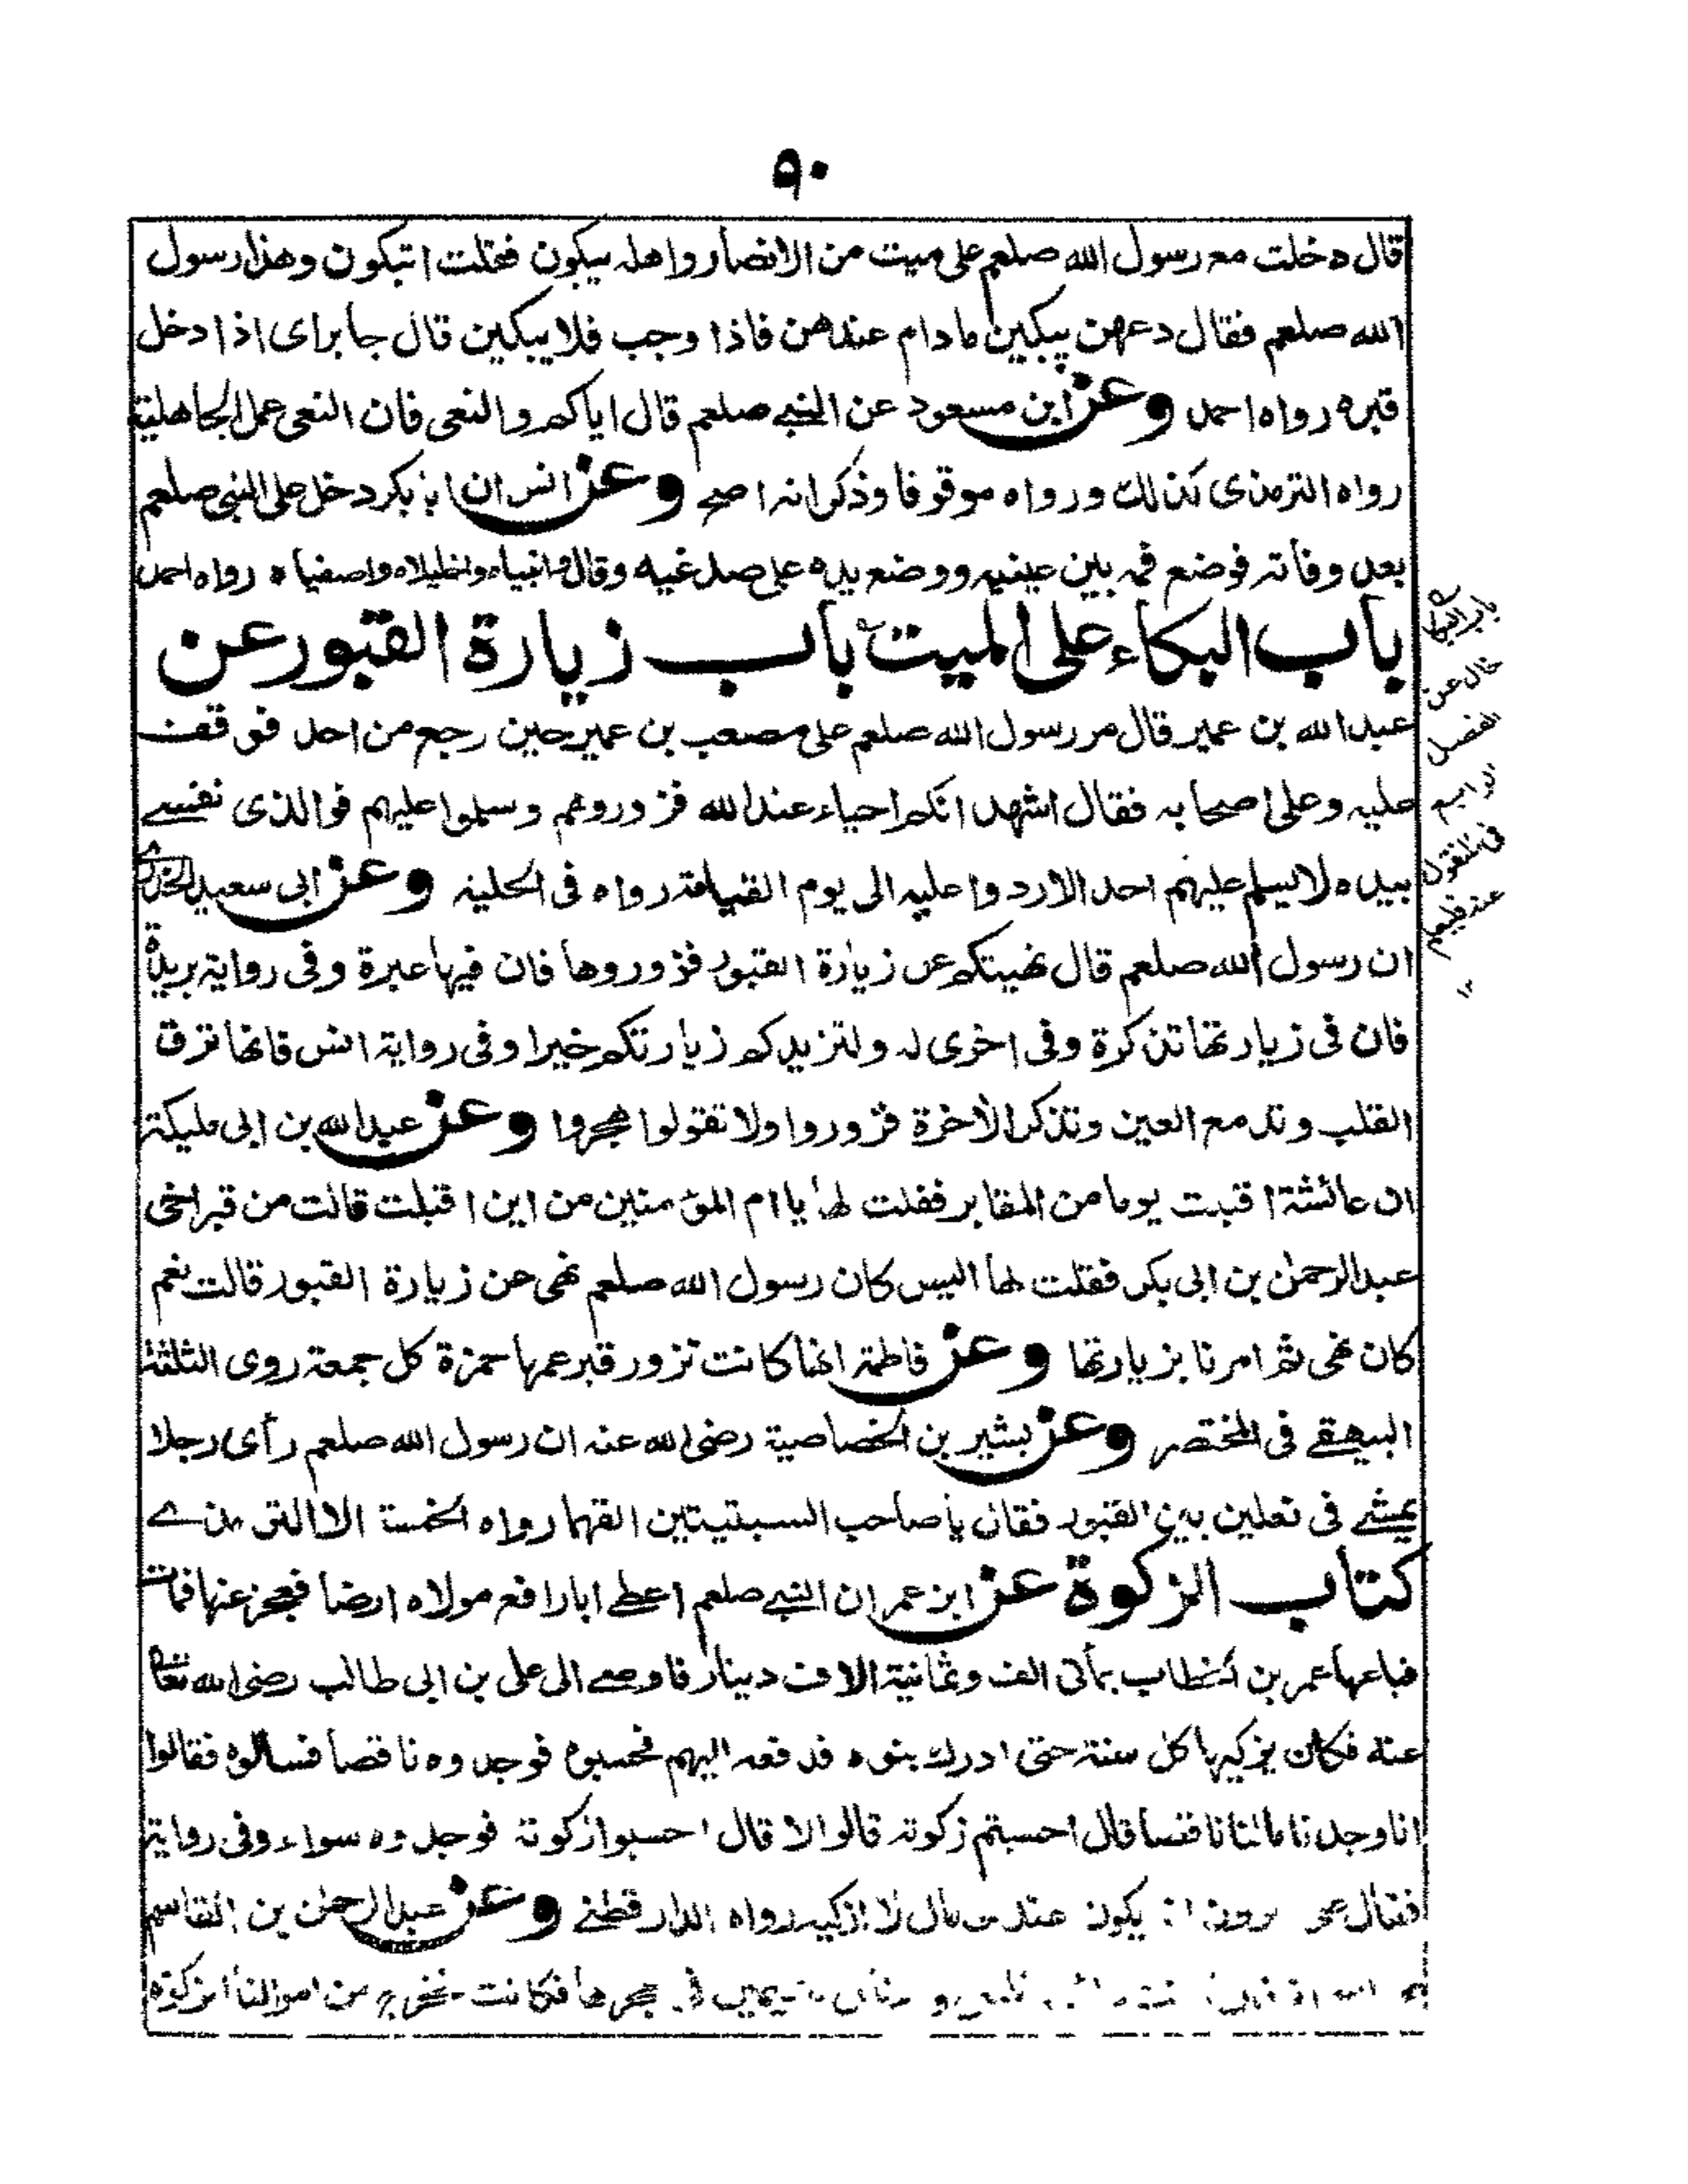 ٩٠
قال دخلت مع رسول الله صلعم على ميت من الانصار واهله يبكون فقلت اتبكون وهذا رسول
الله صلعم فقال دعهن يبكين ما دام عندهن فاذا وجب فلا يبكين قال جابر اى اذا دخل
قبره رواه احمد وعن ابن مسعود عن النبي صلعم قال اياكم والنعى فان النعى عمل الجاهلية
رواه الترمذى كذلك ورواه موقوفا وذكر انه اصح وعن انس ان ابا بكر دخل على النبى صلعم
بعد وفاته فوضع فمه بين عينيه ووضع يده على صدغيه وقال وانبياه واخليلاه واصفياه رواه احمد
باب البكاء على الميت باب زيارة القبور عن
عبد الله بن عمير قال مر رسول الله صلعم على مصعب بن عمير حين رجع من احد فوقف
عليه وعلى اصحابه فقال اشهد انكم احياء عند الله فزوروهم وسلموا عليهم فوالذى نفسي
بيده لا يسلم عليهم احد الا ردوا عليه الى يوم القيامة رواه فى الحلية وعن ابى سعيد الخدرى
ان رسول الله صلعم قال نهيتكم عن زيارة القبور فزوروها فان فيها عبرة وفى رواية بريدة
فان فى زيارتها تذكرة وفى اخرى له ولتزيدكم زيارتكم خيرا وفى رواية انس فانها ترق
القلب وتدمع العين وتذكر الاخرة فزوروا ولا تقولوا هجروا وعن عبد الله بن ابى مليكة
ان عائشة اقبلت يوما من المقابر فقلت لها يا ام المؤمنين من اين اقبلت قالت من قبر اخى
عبد الرحمن بن ابى بكر فقلت لها اليس كان رسول الله صلعم نهى عن زيارة القبور قالت نعم
كان نهى ثم امرنا بزيارتها وعن فاطمة انها كانت تزور قبر عمها حمزة كل جمعة روى الثلثة
البيهقي فى المختصر وعن بشير بن الخصاصية رضى الله عنه ان رسول الله صلعم رأى رجلا
يمشي فى نعلين بين القبور فقال يا صاحب السبتيتين القهما رواه الخمسة الا الترمذي
كتاب الزكوة عن ابن عمر ان النبي صلعم اعطى ابا رافع مولاه ارضا فعجز عنها فمات
فباعها عمر بن الخطاب بمأتى الف وثمانية الاف دينار فاوصى الى على بن ابى طالب رضى الله تعا
عنه فكان يزكيها كل سنة حتى ادرك بنوه فدفعه اليهم فحسبوه فوجدوه ناقصا فسالوه فقالوا
انا وجدنا مالنا ناقصا قال احسبتم زكوته قالوا لا قال احسبوا زكوته فوجدوه سواء وفى رواية
فقال يكون عندى مال لا ازكيه رواه الدارقطني وعن عبد الرحمن بن القاسم
فى حجرها فكانت تخرج من اموالنا الزكوة
باب البكاء
خال عن
الفصل
فى المنقول
عنه